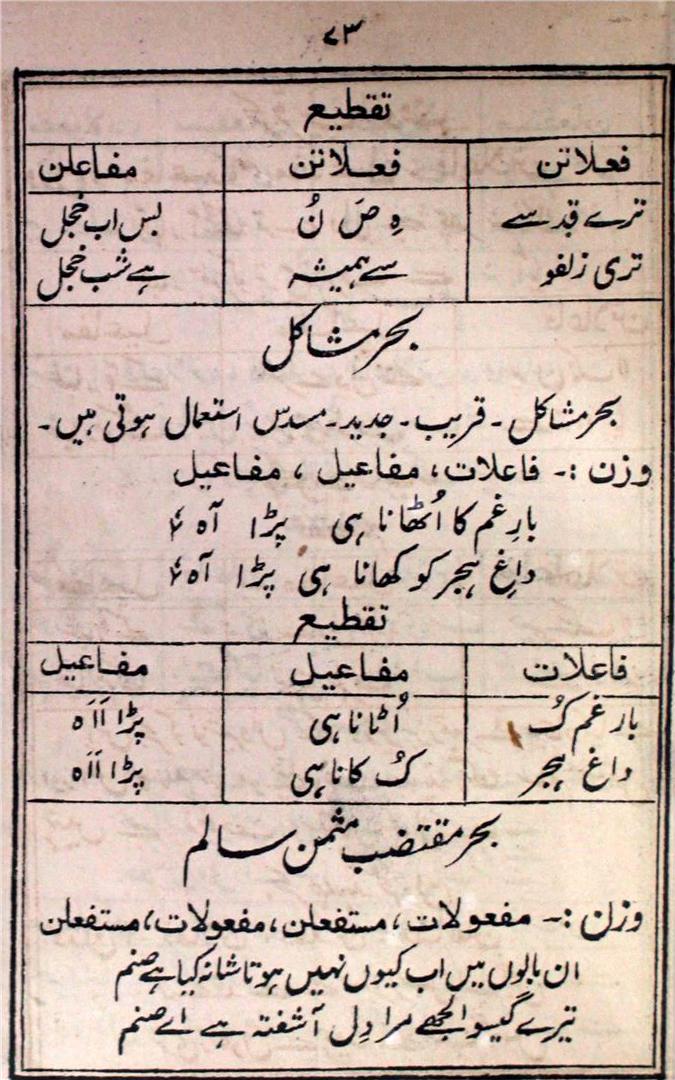 ۷۳
تقطیع
فعلاتن فعلاتن مفاعلن
ترے قد سے ہِ صَ نُ بس اب خجل
تری زلفو سے ہمیشہ ہے شب خجل
بحر مشاکل
بحر مشاکل ۔ قریب ۔ جدید ۔ مسدس استعمال ہوتی ہیں ۔
وزن :۔ فاعلات ، مفاعیل ، مفاعیل
بارِ غم کا اُٹھانا ہی پڑا آہ ۴
داغِ ہجر کو کھانا ہی پڑا آہ ۴
تقطیع
فاعلات مفاعیل مفاعیل
بار غم کُ اُٹانا ہی پڑا اَاَہ
داغ ہجر کُ کانا ہی پڑا اَاَہ
بحر مقتضب مثمن سالم
وزن :۔ مفعولات ، مستفعلن ، مفعولات ، مستفعلن
ان بالوں میں اب کیوں نہیں ہوتا شانہ کیا ہے صنم
تیرے گیسو الجھے مرا دِل آشفتہ ہے اے صنم